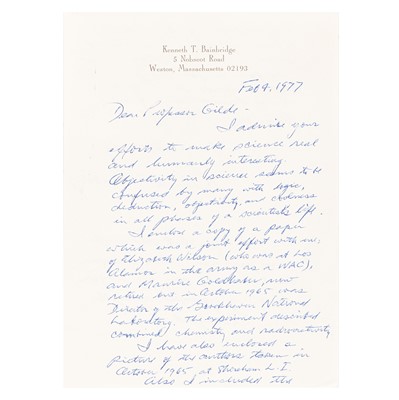 Kenneth T. Bainbridge
5 Nobscot Road
Weston, Massachusetts 02193
Feb 4, 1977
Dear Professor Gilde -
I admire your
efforts to make science real
and humanly interesting.
Objectivity in science seems to be
confused by many with logic,
deduction, objectivity, and
in all phases of a scientist's life.
I enclose a copy of a paper
which was a joint effort with me,
of Elizabeth Watson (who was at Los
Alamos in the army as a WAC),
and Maurice Goldhaber, now
retired but in October 1965 was
Director of the Brookhaven National
Laboratory. The experiment described
combined chemistry and radioactivity.
I have also enclosed a
picture of the authors taken in
October 1965, at Shoreham L.I.
Also I included the